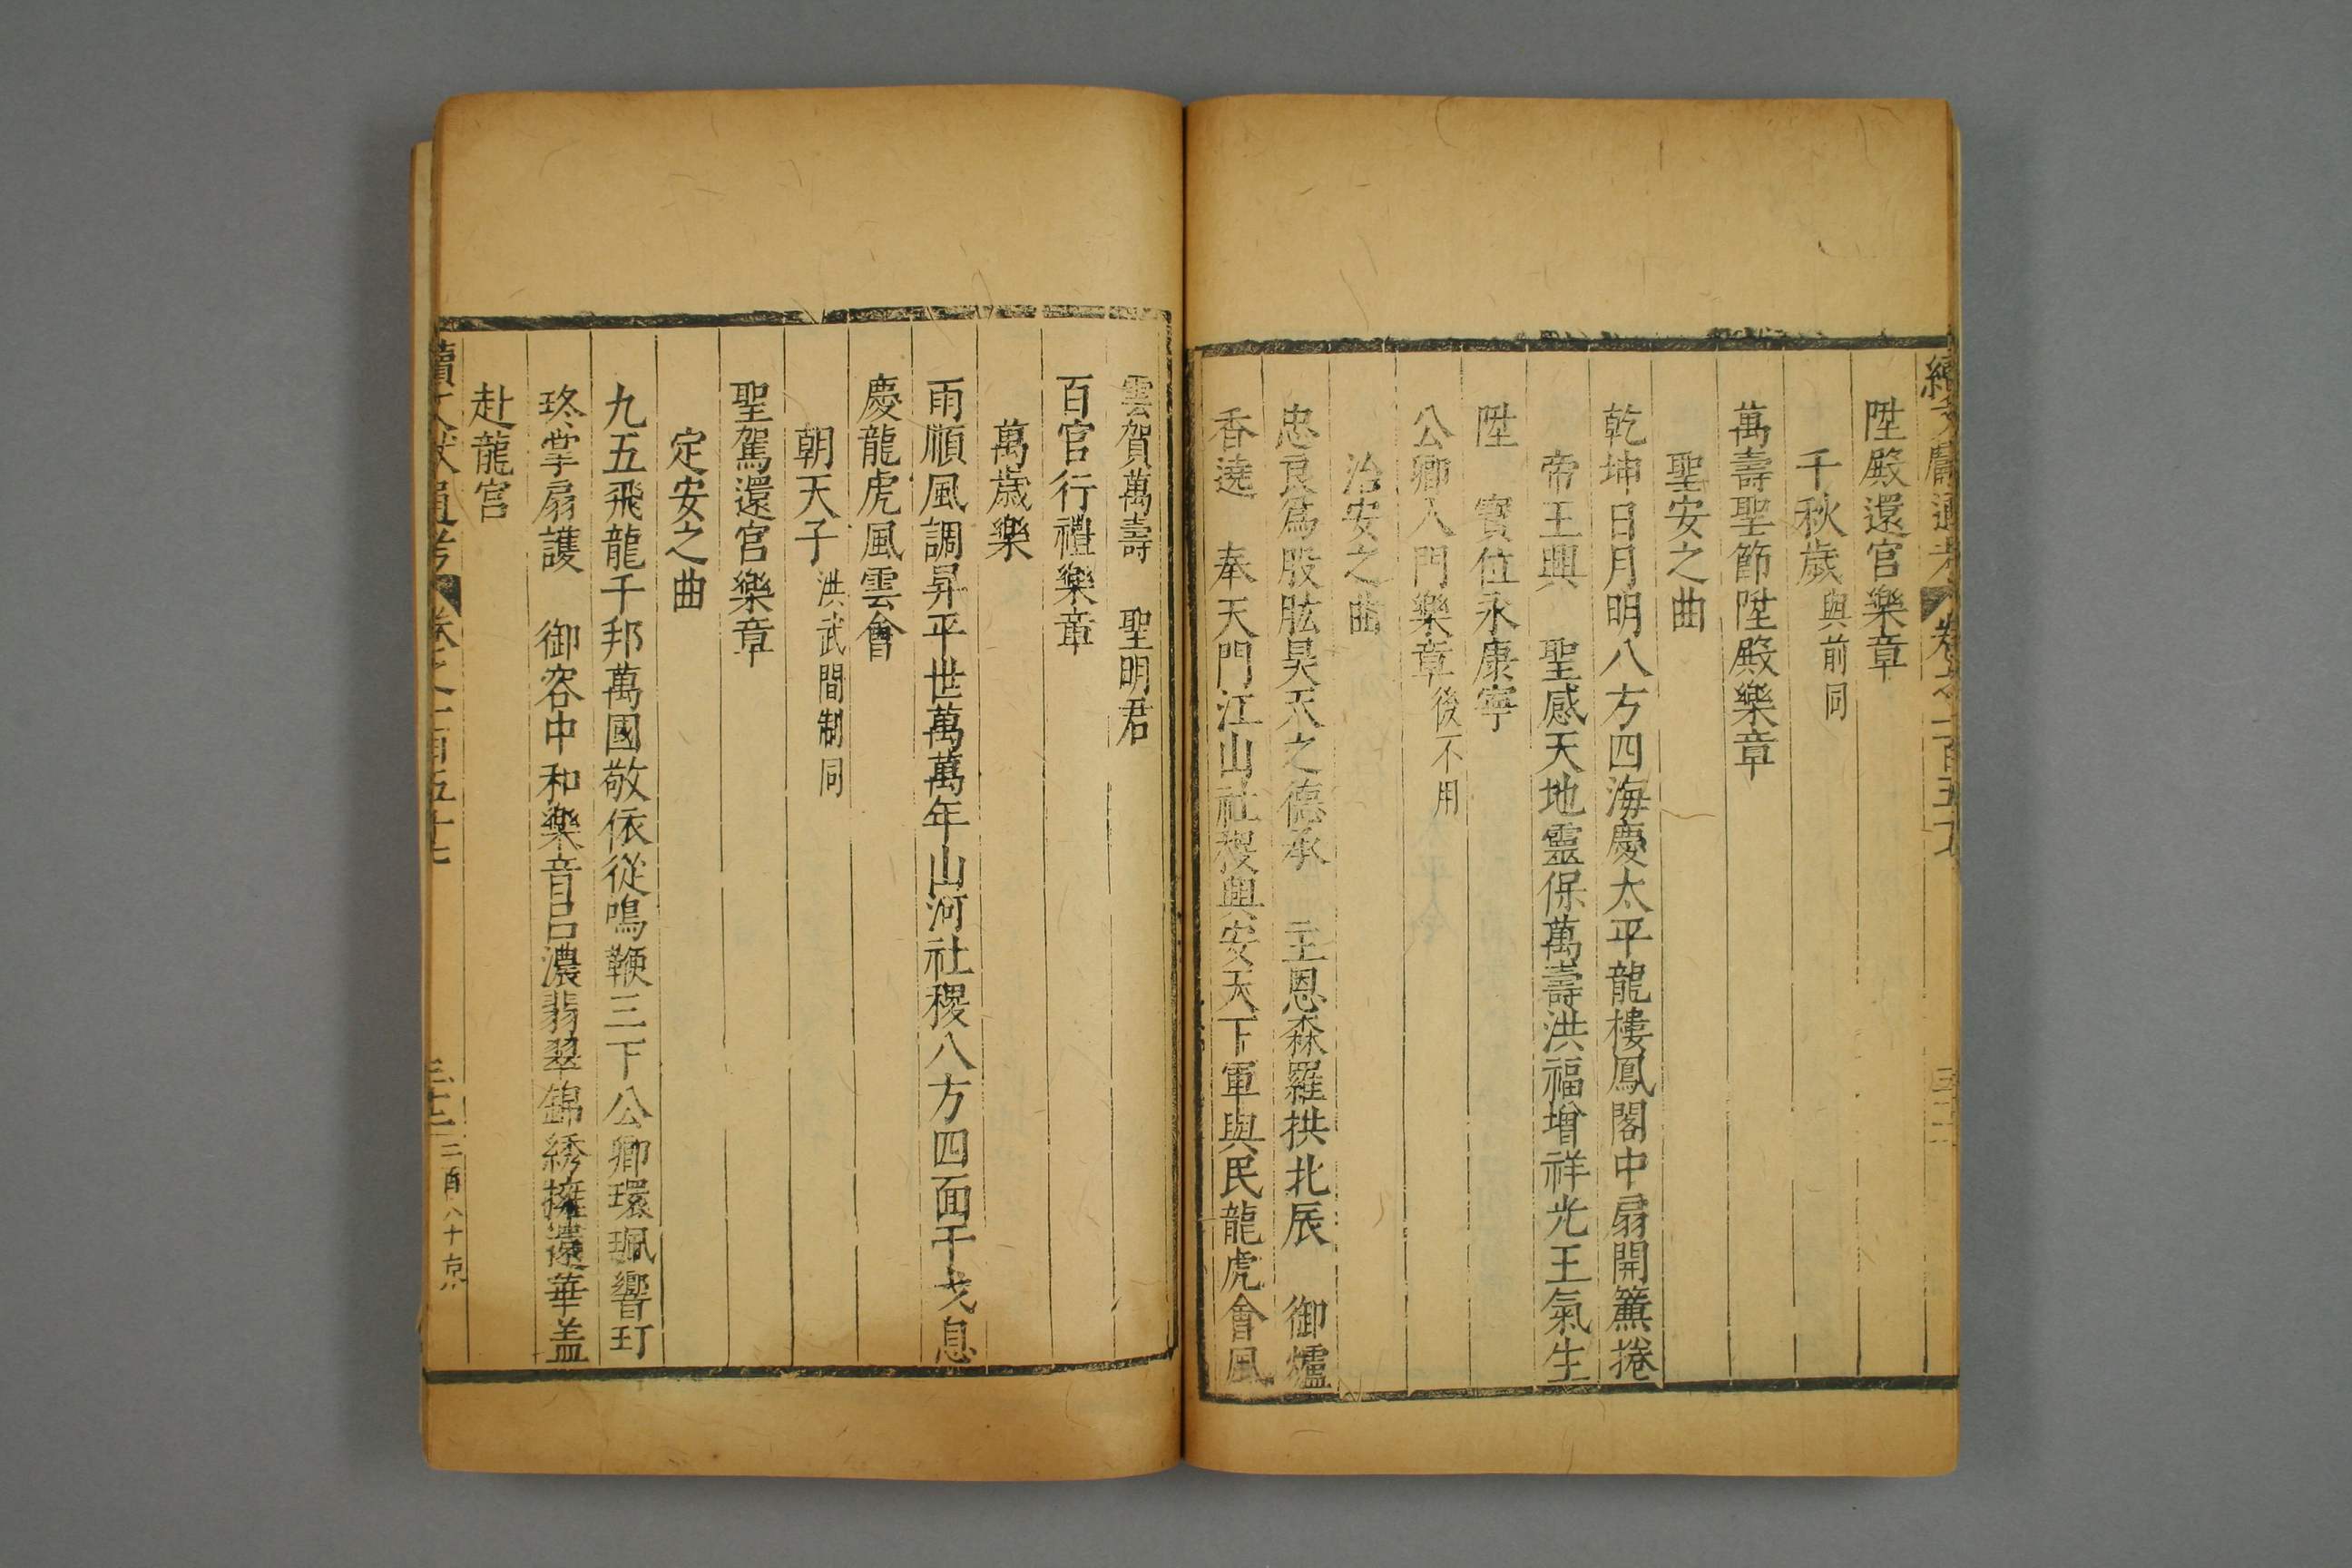 陞殿還宮樂章
千秋歲與前同
萬壽聖節陞殿樂章
聖安之曲
乾坤日月明八方四海慶太平龍樓鳳閣中扇開簾捲
帝王興　聖感天地靈保萬壽洪福增祥光王氣生
陞　寶位永康寧
公卿入門樂章後不用
治安之曲
忠良爲股肱昊天之德承　主恩森羅拱北辰　御爐
香遶　奉天門江山社稷興安天下軍與民龍虎會風
雲賀萬壽　聖明君
百官行禮樂章
萬歲樂
雨順風調昇平世萬萬年山河社稷八方四面干戈息
慶龍虎風雲會
朝天子洪武間制同
聖駕還宮樂章
定安之曲
九五飛龍千邦萬國敬依從鳴鞭三下公卿環珮響玎
珓掌扇護　御容中和樂音呂濃翡翠錦綉擁還華盖
赴龍宮
續文獻通考　卷之一百五十七